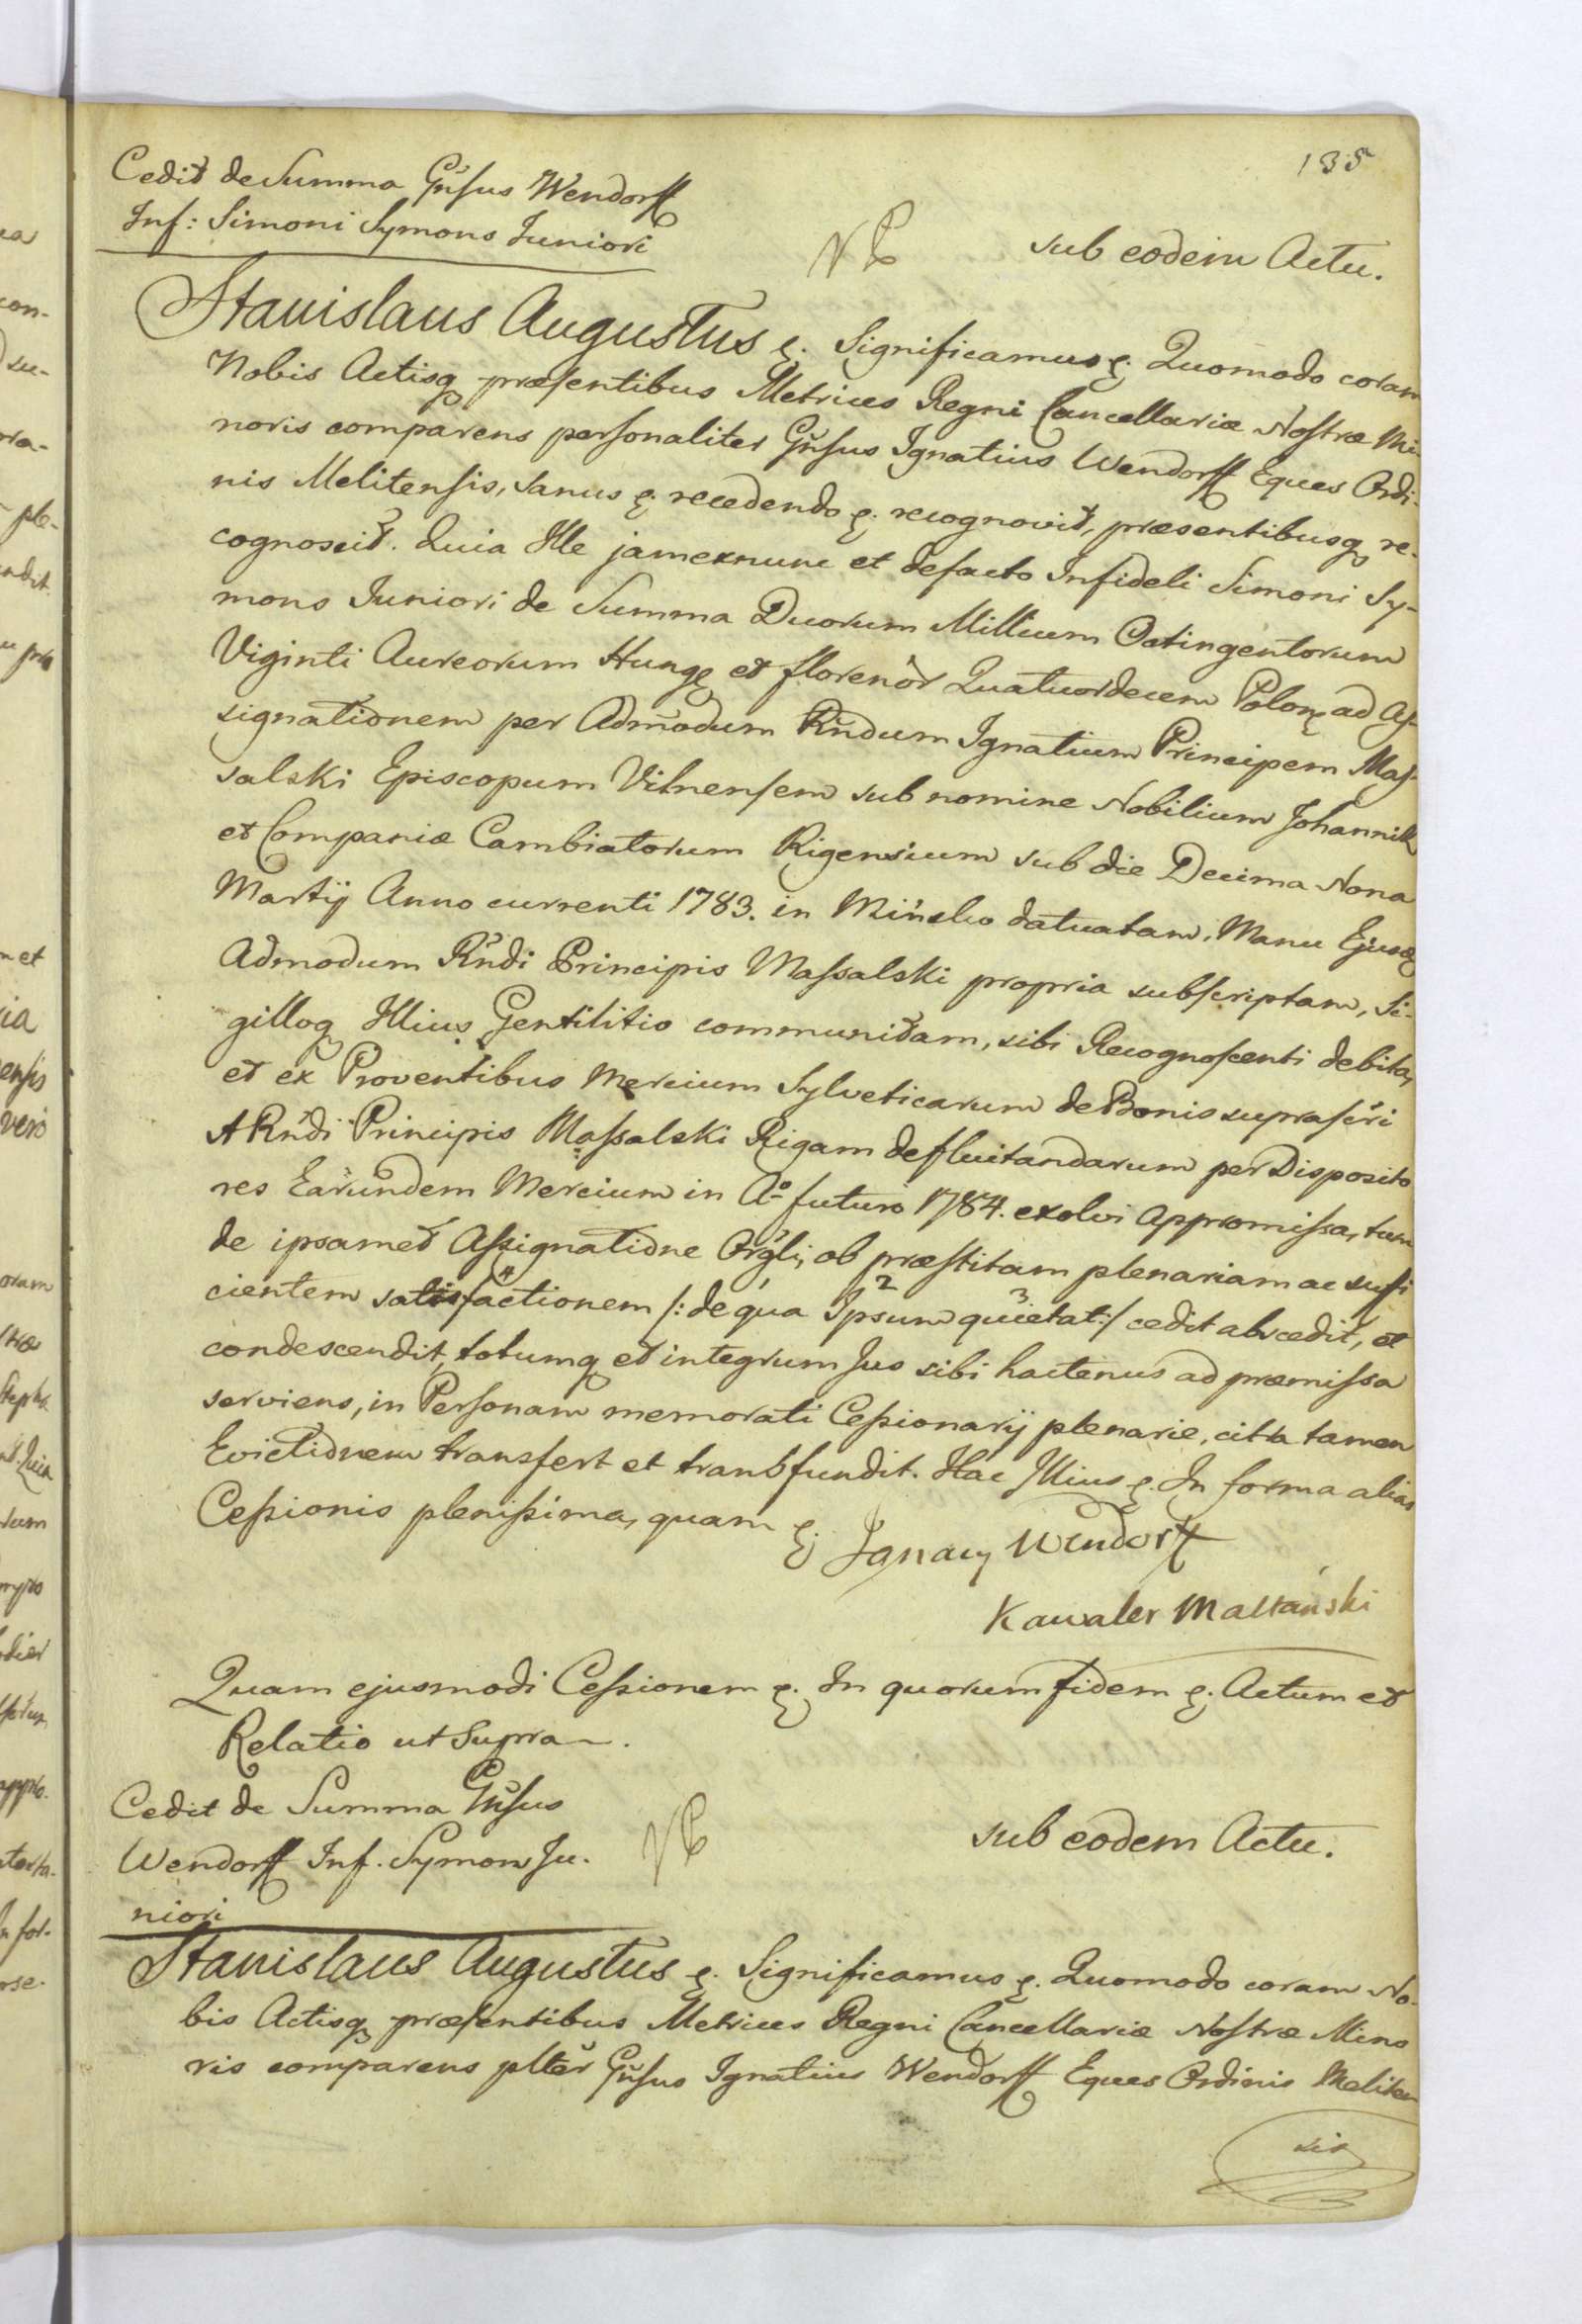 135
Cedit de Summa Gnsus Wendorff
Inf: Simoni Symons Juniori
sub eodem Actu.
Stanislaus Augustus &. Significamus &. Quomodo coram
Nobis Actisq præsentibus Metrices Regni Cancellariæ Nostræ Mi-
noris comparens personaliter Gnsus Ignatius Wendorff Eques Ordi-
nis Melitensis, sanus &. recedendo &. recognovit, præsentibusq re-
cognoscit. Quia Ille jamexnunc et defacto Infideli Simoni Sy-
mons Juniori de Summa Duorum Millium Octingentorum
Viginti Aureorum Hung et florenor Quatuordecem Polon ad As-
signationem per Admodum Rndum Ignatium Principem Mas-
salski Episcopum Vilnensem sub nomine Nobilium
et Companiæ Cambiatorum Rigensium sub die Decima Nona
Martij Anno currenti 1783. in Mińsko datuatam, Manu Ejusd
Admodum Rndi Principis Massalski propria subscriptam, Si-
gilloq Illius Gentilitio communitam, sibi Recognoscenti debita,
et ex Proventibus Mercium Sylveticarum de Bonis suprascri
ARndi Principis Massalski Rigam defluitandarum per Disposito
res Earundem Mercium in Ao futuro 1784. exolvi Appromissa, tum
de ipsamet Assignatione Orgli, ob præstitam plenariam ac suffi
cientem satisfactionem /: de qua Ipsum quietat :/ cedit abscedit, et
condescendit, totumq et integrum Jus sibi hactenus ad præmissa
serviens, in Personam memorati Cessionarij plenarie, citra tamen
Evictionem transfert et transfundit. Hac Illius &. In forma alias
Cessionis plenissima, quam &. Ignacy Wendorff
Kawaler Maltański
Quam ejusmodi Cessionem &. In quorum fidem &. Actum et
Relatio ut Supra.
Cedit de Summa Gnsus
Wendorff Inf. Symons Ju-
niori
sub eodem Actu.
Stanislaus Augustus &. Significamus &. Quomodo coram No-
bis Actisq præsentibus Metrices Regni Cancellariæ Nostræ Mino
ris comparens plter Gnsus Ignatius Wendorff Eques Ordinis Meliten
sis